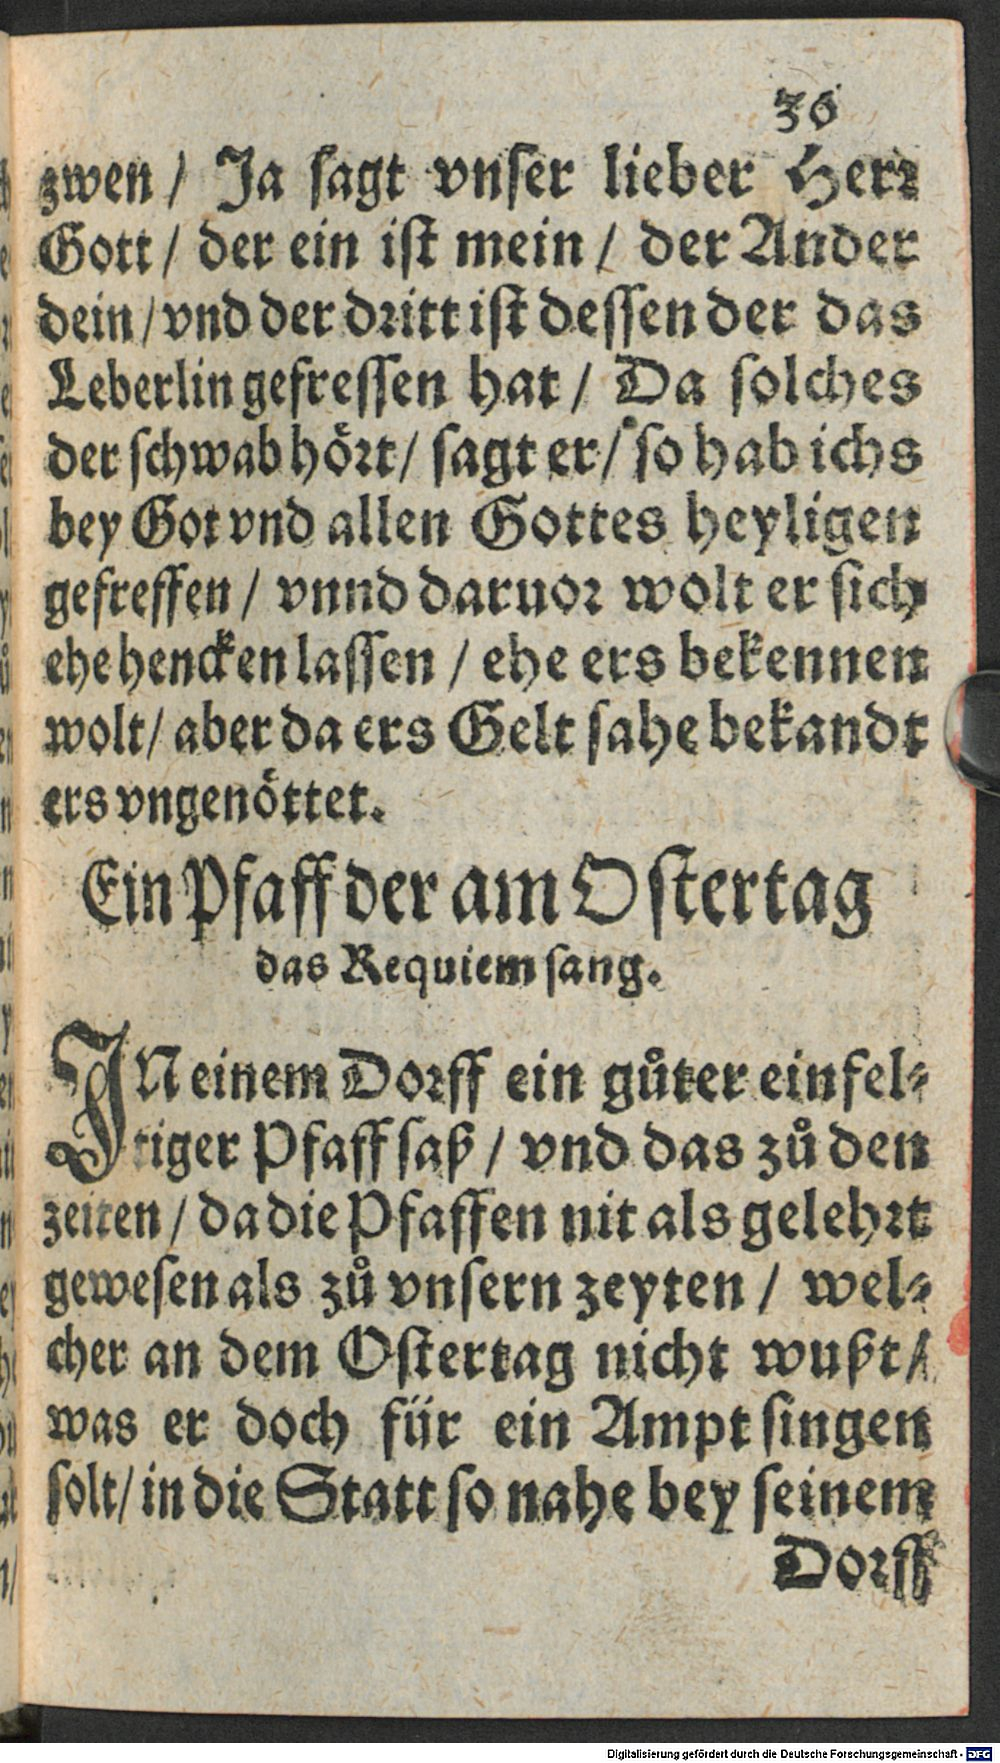 36
zwen / Ja sagt vnser lieber Herr
Gott / der ein ist mein / der Ander
dein / vnd der dritt ist dessen der das
Leberlin gefressen hat / Da solches
der schwab hört / sagt er / so hab ichs
bey Got vnd allen Gottes heyligen
gefressen / vnnd daruor wolt er sich
ehe hencken lassen / ehe ers bekennen
wolt / aber da ers Gelt sahe bekandt
ers vngenöttet.
Ein Pfaff der am Ostertag
das Requiem sang.
IN einem Dorff ein gůter einfel-
tiger Pfaff saß / vnd das zů den
zeiten / da die Pfaffen nit als gelehrt
gewesen als zů vnsern zeyten / wel-
cher an dem Ostertag nicht wußt /
was er doch für ein Ampt singen
solt / in die Statt so nahe bey seinem
Dorff
Digitalisierung gefördert durch die Deutsche Forschungsgemeinschaft - DFG